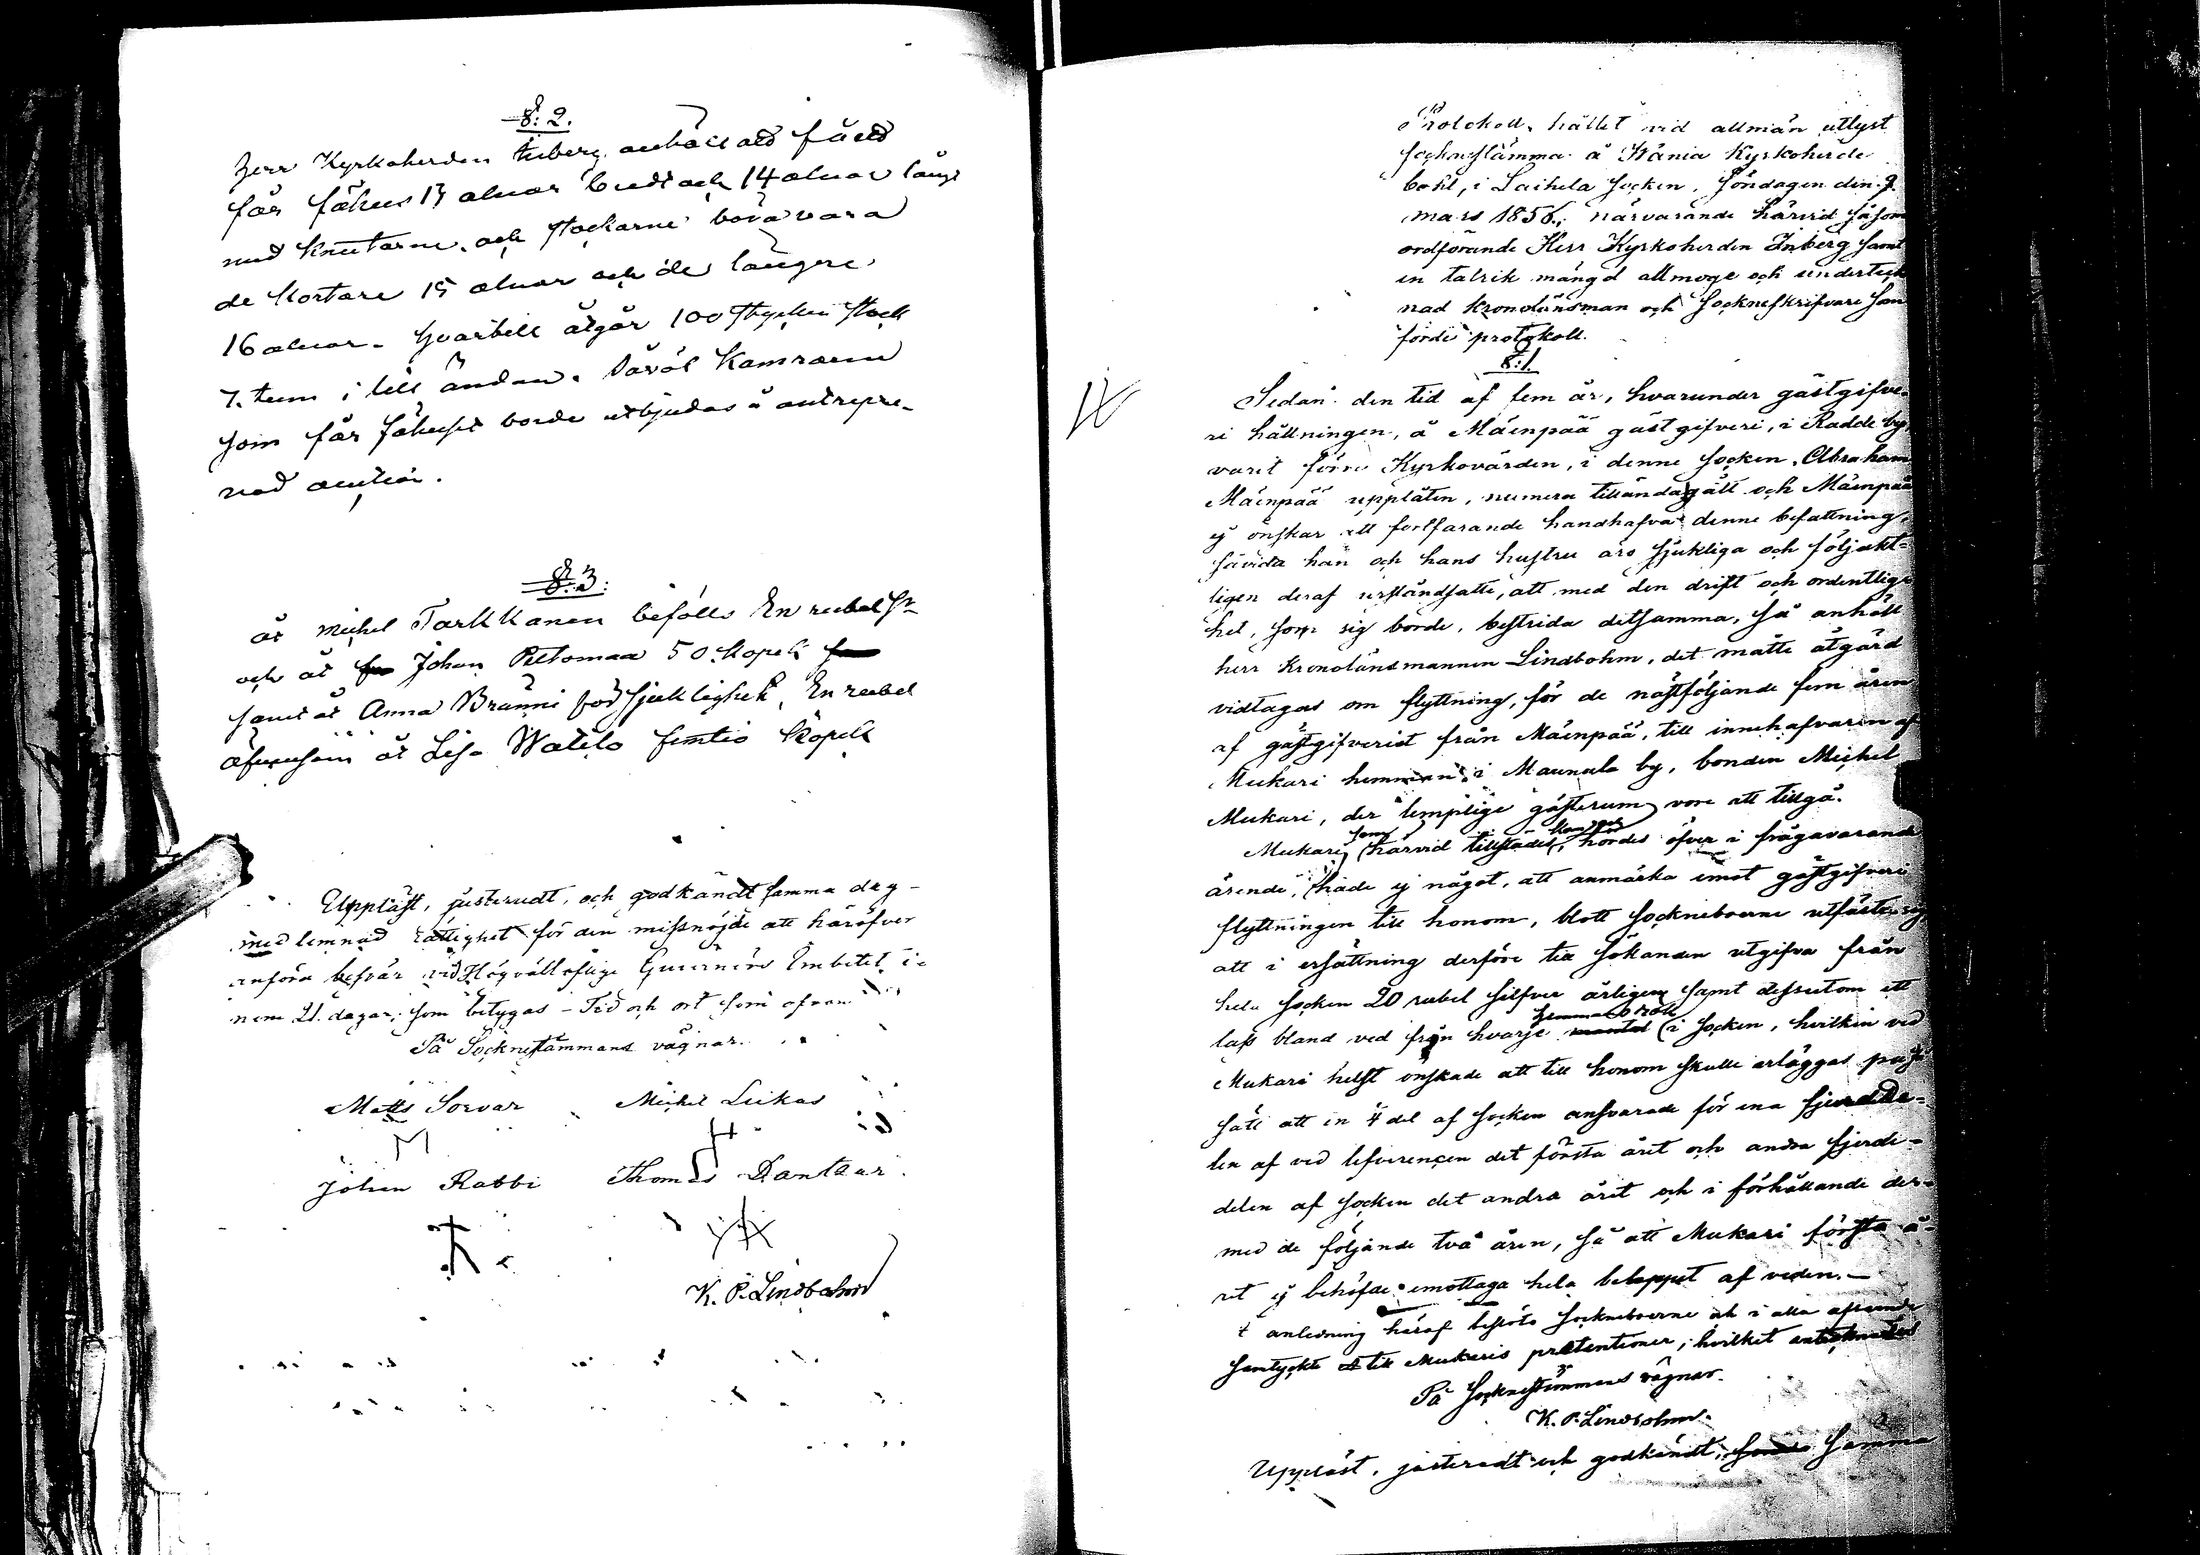 §: 2.
Herr Kyrkoherden Inberg anhåll att få ett
får fähus 13 alnar bredt och 14 alnar långt
med knutarne, och stockarne böra vara
de kortare 15 alnar och de längere
16 alnar. hvartill åtgår 100 stycken stock
7. tum i lill ändan.
som får fähuset borde utbjudas å entrepre-
nad auction.
§: 3:
åt Michel Tarkkanen befölls En rubel Sr
och åt Johan Peltomaa 50 Kopek
samt åt Anna Brunni för sjuklighet, En rubel
äfvensom åt Lisa Watilo femtio Kopek
Uppläst, justeradt, och godkändt samma dag -
med lemnad rättighet för den missnöjde att häröfver
anföra besvär vid Högvällofliga Guvernörs Embetet i-
nom 21. dagar, som betygas - Tid och ort som ofvan
På Sockneštämmans vägnar.
Matts Sorvar Michel Luikas
M H
Johan Rabbi Thomas Dantkar
K. P. Lindbohm
Protokoll, hållet vid allmän utlyst
sockneštämma å Stånia Kyrkoherde
bohl, i Laihela Socken, Söndagen den 9.
mars 1856., närvarande härvid såsom
ordförande Herr Kyrkoherden Inberg samt
en talrik mängd allmoge och underteck
nad kronolänsman och Socknefkrifvare som
förde protokoll.
§:1.
Sedan den tid af fem år, hvarunder gästgifve-
ri hållningen, å Mäenpää gästgifveri, i Radde by,
varit förre Kyrkovärden, i denne socken, Abraham
Mäenpää upplåten, numera tilländagått och Mäenpää
ej önskar att fortfarande handhafva denne befattning,
såvida han och hans hustru äro sjukliga och följakt-
ligen deraf urståndsatte, att med den drift och ordentlig
het, som sig borde, bestrida detsamma, så anhöll
herr Kronolänsmannen Lindbohm, det måtte åtgärd
vidtagas om flyttning, för de nästföljande fem åren
af gästgifveriet från Mäenpää, till innehafvaren af
Mukari hemman i Maunula by, bonden Michel
Mukari, der lempelige gästerum vore att tillgå.
Mukari, som härvid tillstädes, hördes öfver i frågavarande
ärende, hade ej något, att anmärka emot gästgifveri
flyttningen till honom, blott sockneboerne utfäste sig
att i ersättning derföre till sökanden utgifva från
hela socken 20 rubel silfver årligen samt dessutom ett
lass bland ved från hvarje mantal i socken, hvilken ved
Mukari helst önskade att till honom skulle erläggas på så
sätt att en 4 del af socken ansvarade för ena fjerdede-
len af ved lefverencen det första året och andra fjerde-
delen af socken det andra året och i förhållande der-
med de följande två åren, så att Mukari första å-
ret ej behöfde emottaga hela beloppet af veden. —
I anledning häraf beslöto sockneboerne att i alla afseende
samtycka till Mukaris prætentioner, hvilket antecknades
På Socknestämmans vägnar.
K. P. Lindbohm.
Uppläst, justeradt och godkändt, samma